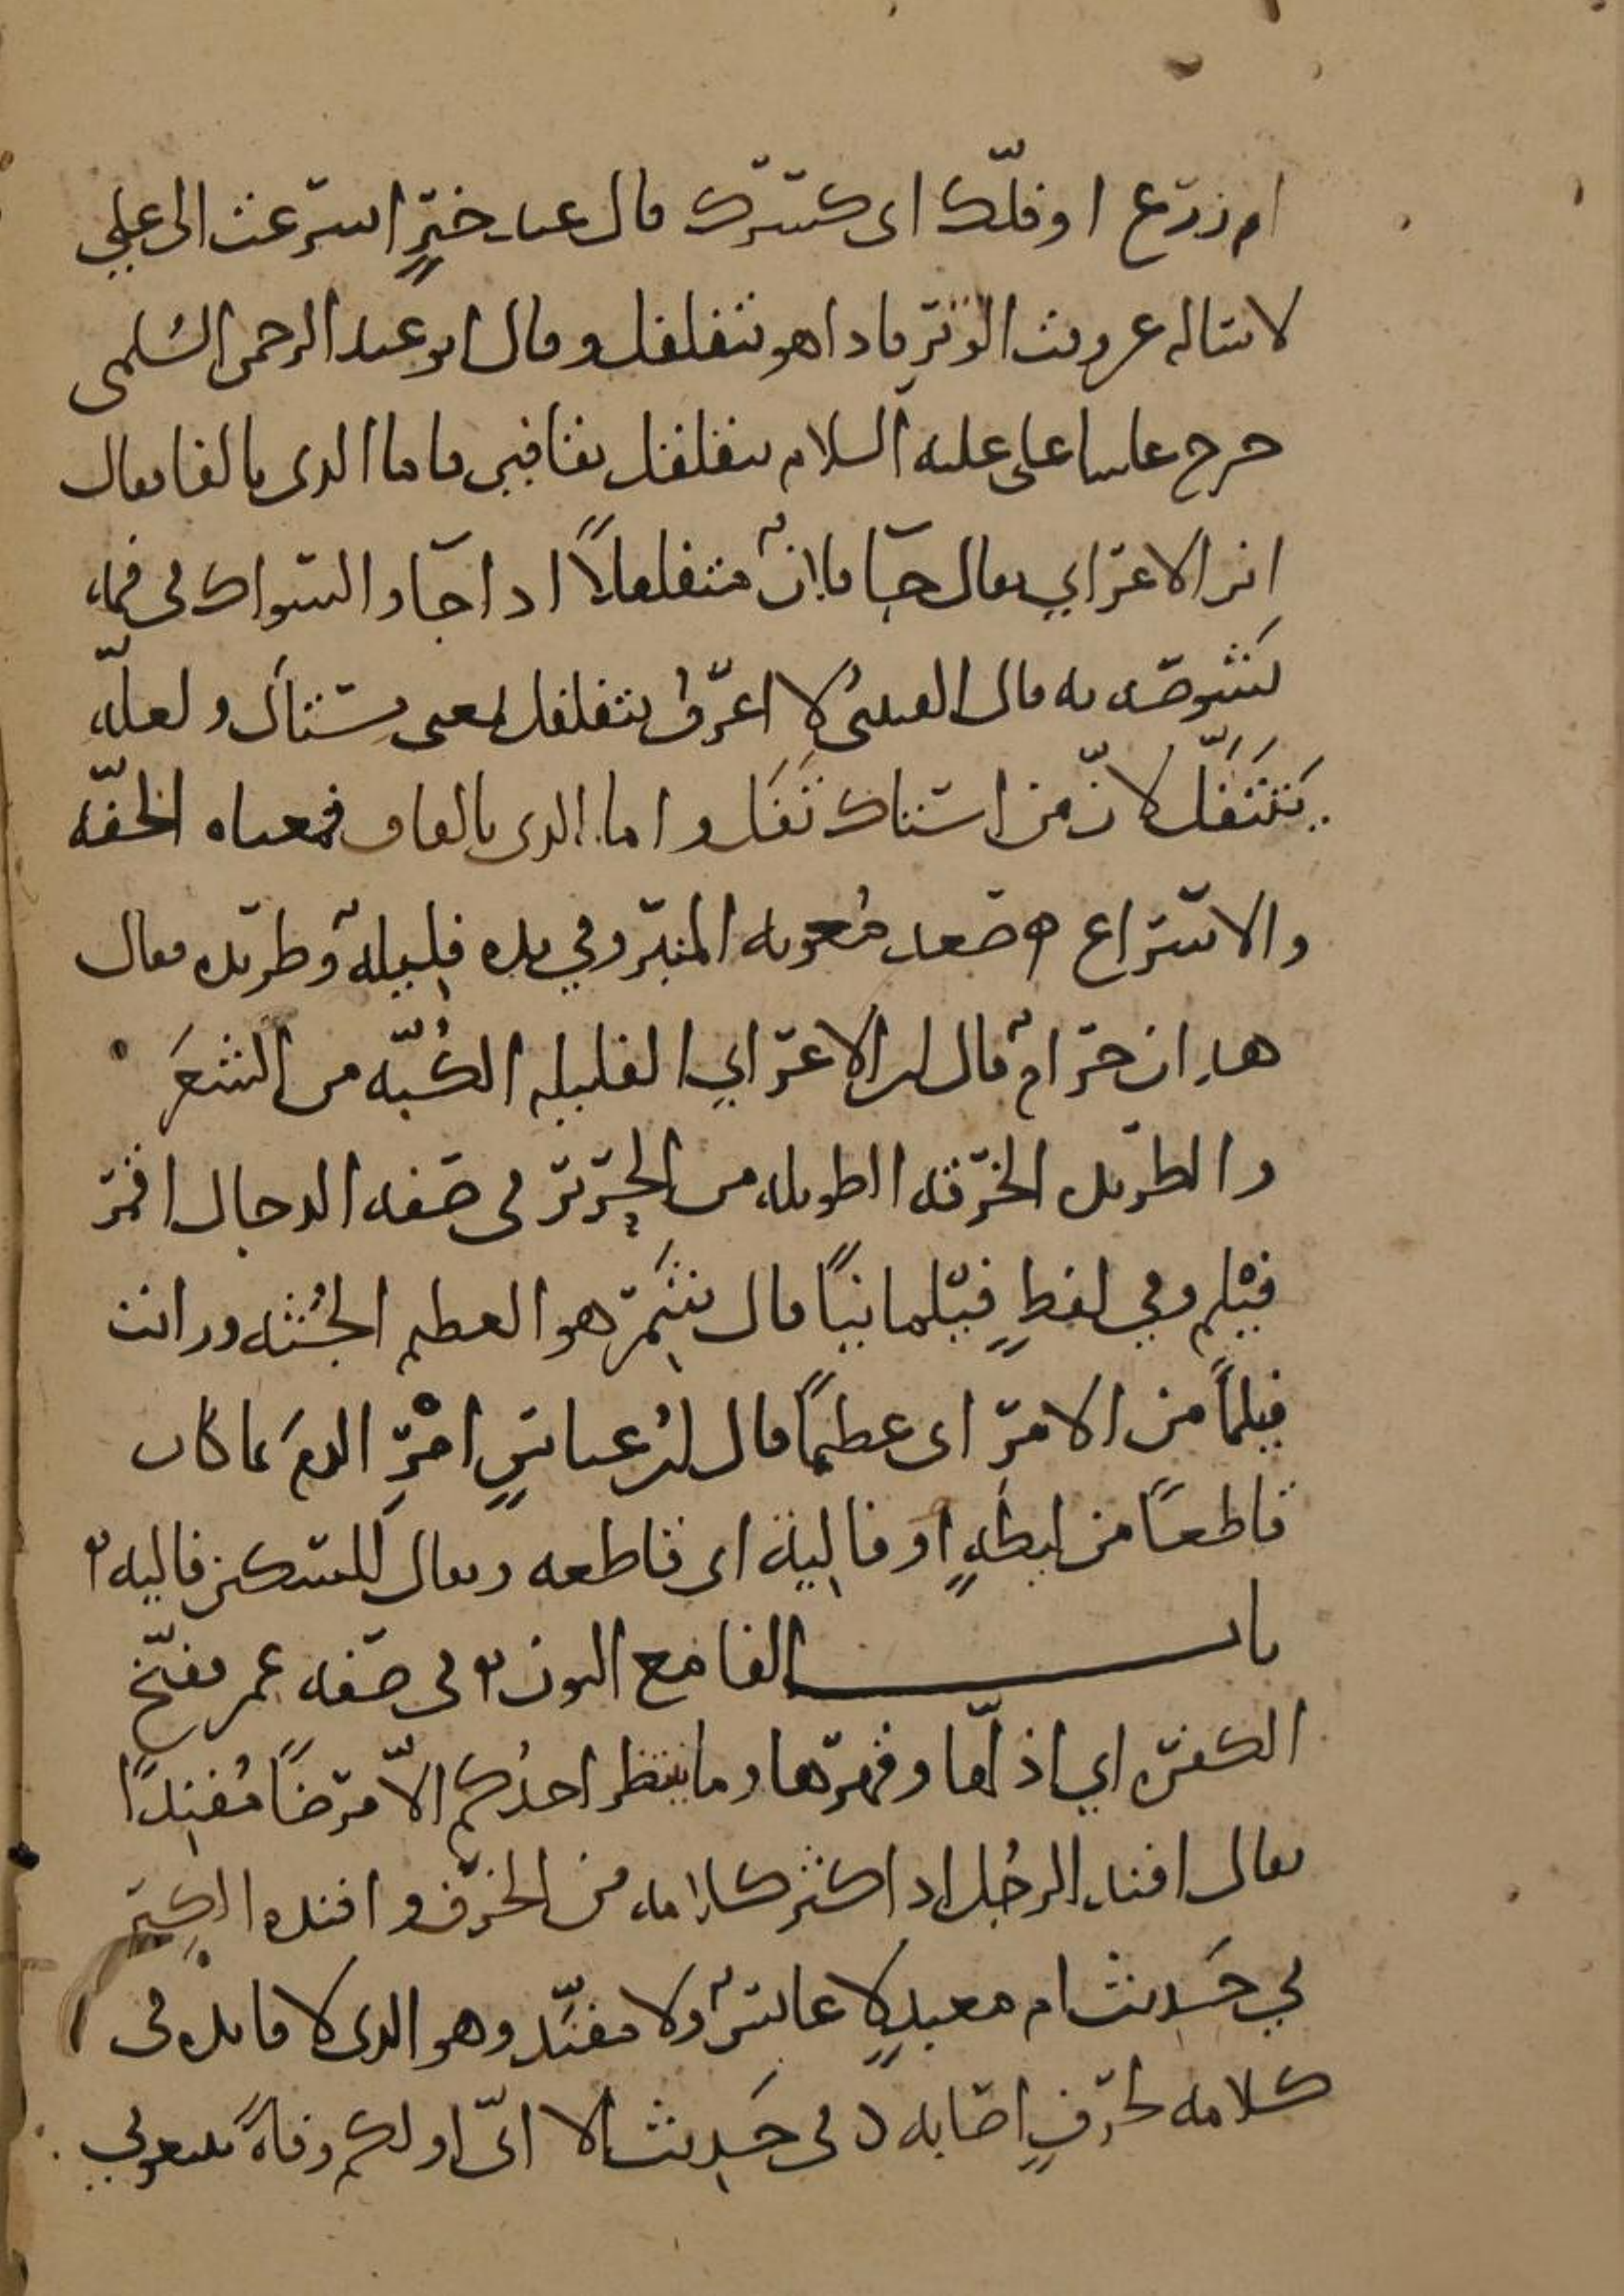 ام زرع او فلّك اى كسرك قال عبد خيرٍ اسرعت الى علي
لاساله عن وقت الوتر فاذا هو يتفلفل وقال ابو عبد الرحمن السلمى
خرج علينا علي عليه السلام يتفلفل بفائين فاما الذى بالفا فقال
ابن الاعرابي يقال جا فلان متفلفلاً اذا جا والسواك في فمه
يشوصه به قال القتيبى لا اعرف يتفلفل بمعنى يستاك ولعله
يتتفّل لانّ من استاك تفل واما الذى بالقاف فمعناه الخفّه
والاسراع ه صعد معويه المنبر وفي يده فليلةٌ وطريده فقال
هذان حرامٌ قال ابن الاعرابي الفليله الكُبّه من الشعَر
والطريده الخرقه الطويله من الحرير في صفه الدجال اقمر
فيْلم وفي لفظٍ فيْلمانياً قال شمر هو العظيم الجُثه ورايت
فيلماً من الامر اى عظيماً قال ابن عباسٍ امْرِ الدمَ بما كان
قاطعاً من ليطةٍ او فالية اى قاطعه ويقال للسكين فاليه
باب الفا مع النون في صفه عمر ففنخ
الكفره اي اذلّها وقهرها وما ينتظر احدُكم الاّ مرضاً مُفنِداً
يقال افند الرجُل اذا كثر كلامه من الخرف وافنده الكِبَر
في حَديث ام معبدٍ لا عابسٌ ولا مفنّد وهو الذى لا فايده في
كلامه لخرفٍ اصابه في حَديث الا انّى اولكم وفاةً تتبعوني